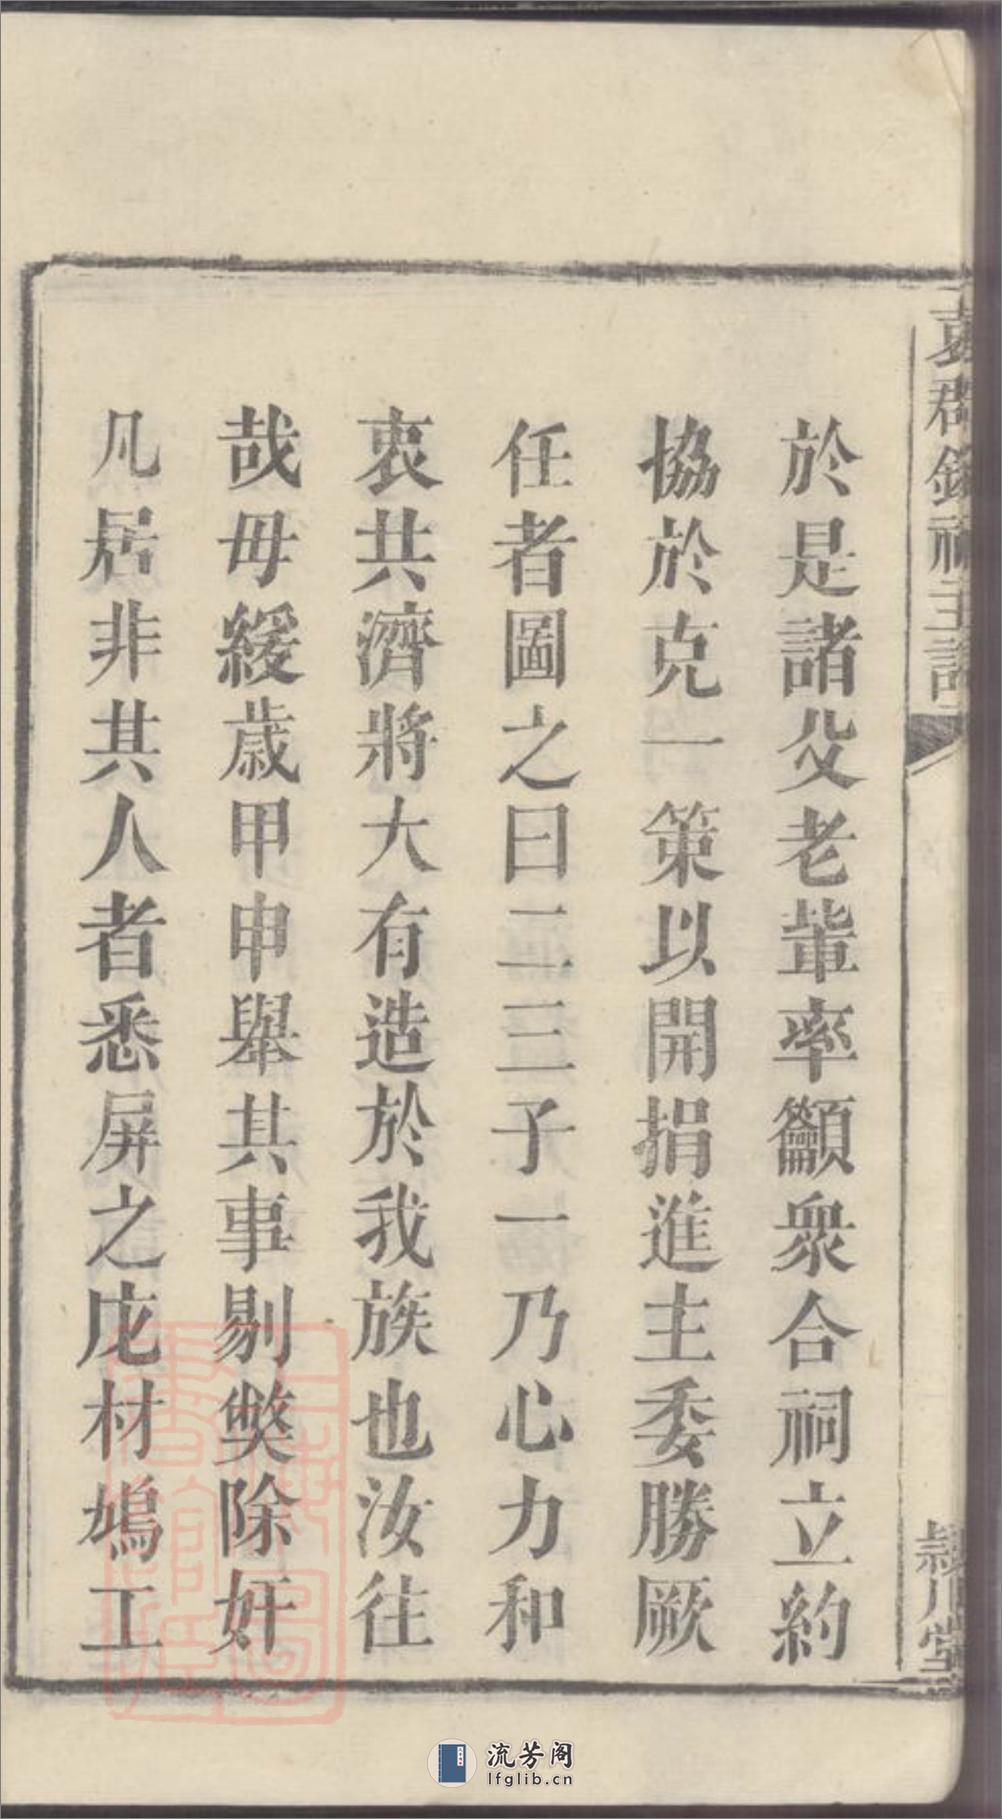 於是諸父老輩率籲衆合祠立約
協於克一策以開捐進主委勝厥
任者圖之曰二三子一乃心力和
衷共濟將大有造於我族也汝往
哉毋緩歲甲申舉其事剔獘除奸
凡居非其人者悉屏之庀材鳩工
袁郡錦祠主
潁川堂
上海圖書館藏
流芳阁
lfglib.cn